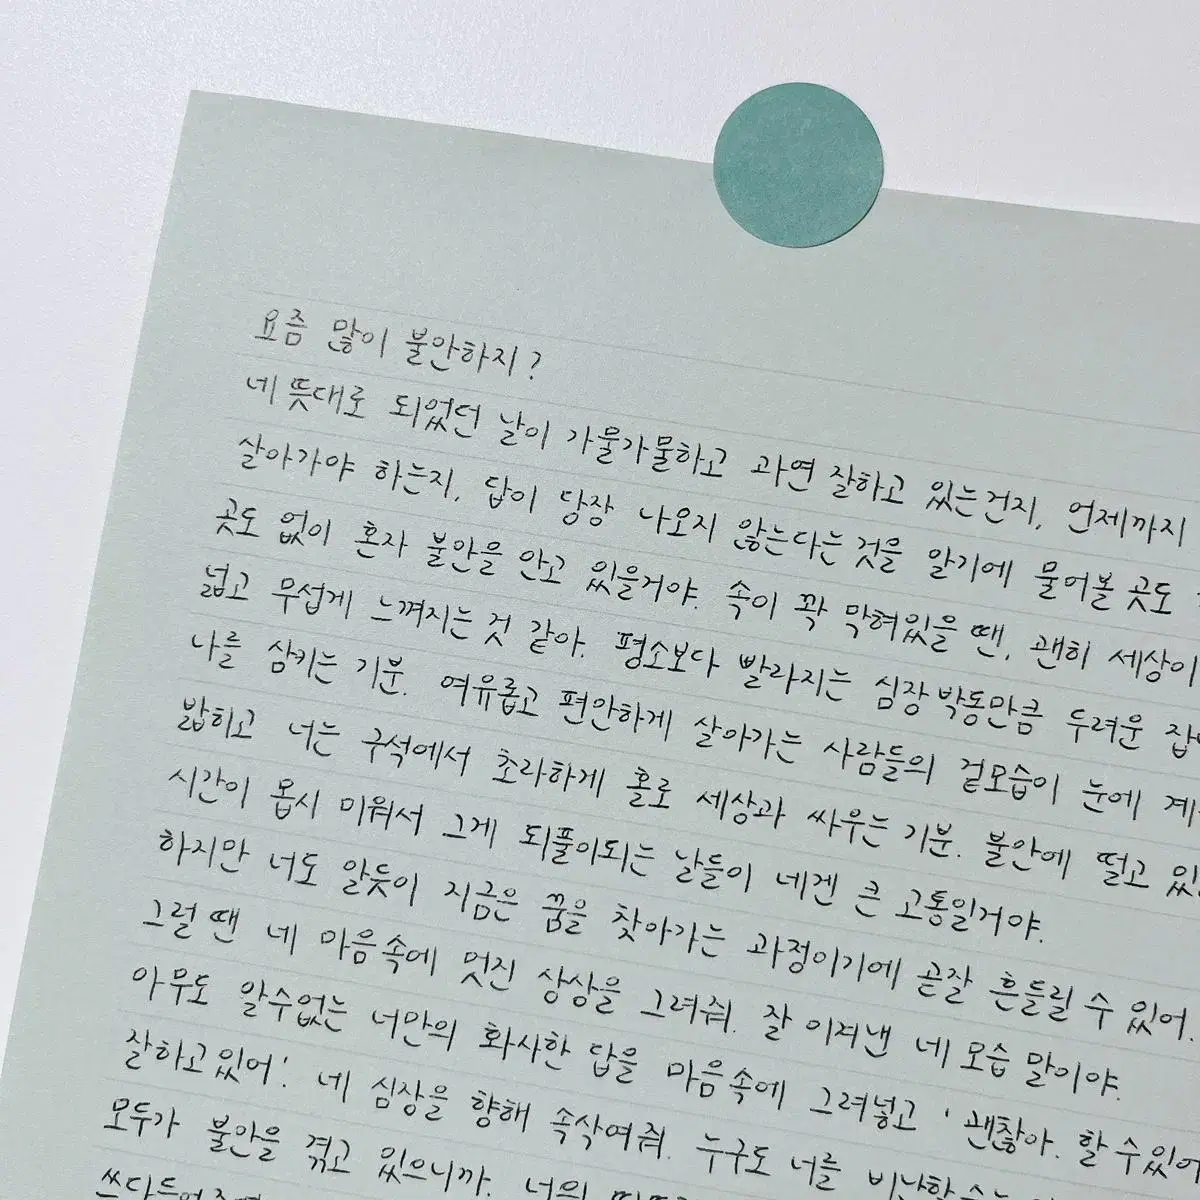 요즘 많이 불안하지?
네 뜻대로 되었던 날이 가물가물하고 과연 잘하고 있는건지, 언제까지
살아가야 하는지, 답이 당장 나오지 않는다는 것을 알기에 물어볼 곳도
곳도 없이 혼자 불안을 안고 있을거야. 속이 꽉 막혀있을 땐, 괜히 세상이
넓고 무섭게 느껴지는 것 같아. 평소보다 빨라지는 심장박동만큼 두려운
나를 삼키는 기분. 여유롭고 편안하게 살아가는 사람들의 겉모습이 눈에
밟히고 너는 구석에서 초라하게 홀로 세상과 싸우는 기분. 불안에 떨고
시간이 몹시 미워서 그게 되풀이되는 날들이 네겐 큰 고통일거야.
하지만 너도 알듯이 지금은 꿈을 찾아가는 과정이기에 곧잘 흔들릴 수 있어.
그럴 땐 네 마음속에 멋진 상상을 그려줘. 잘 이겨낸 네 모습 말이야.
아무도 알수없는 너만의 화사한 답을 마음속에 그려넣고 '괜찮아. 할 수있어
잘하고있어'. 네 심장을 향해 속삭여줘. 누구도 너를
모두가 불안을 겪고 있으니까. 너의